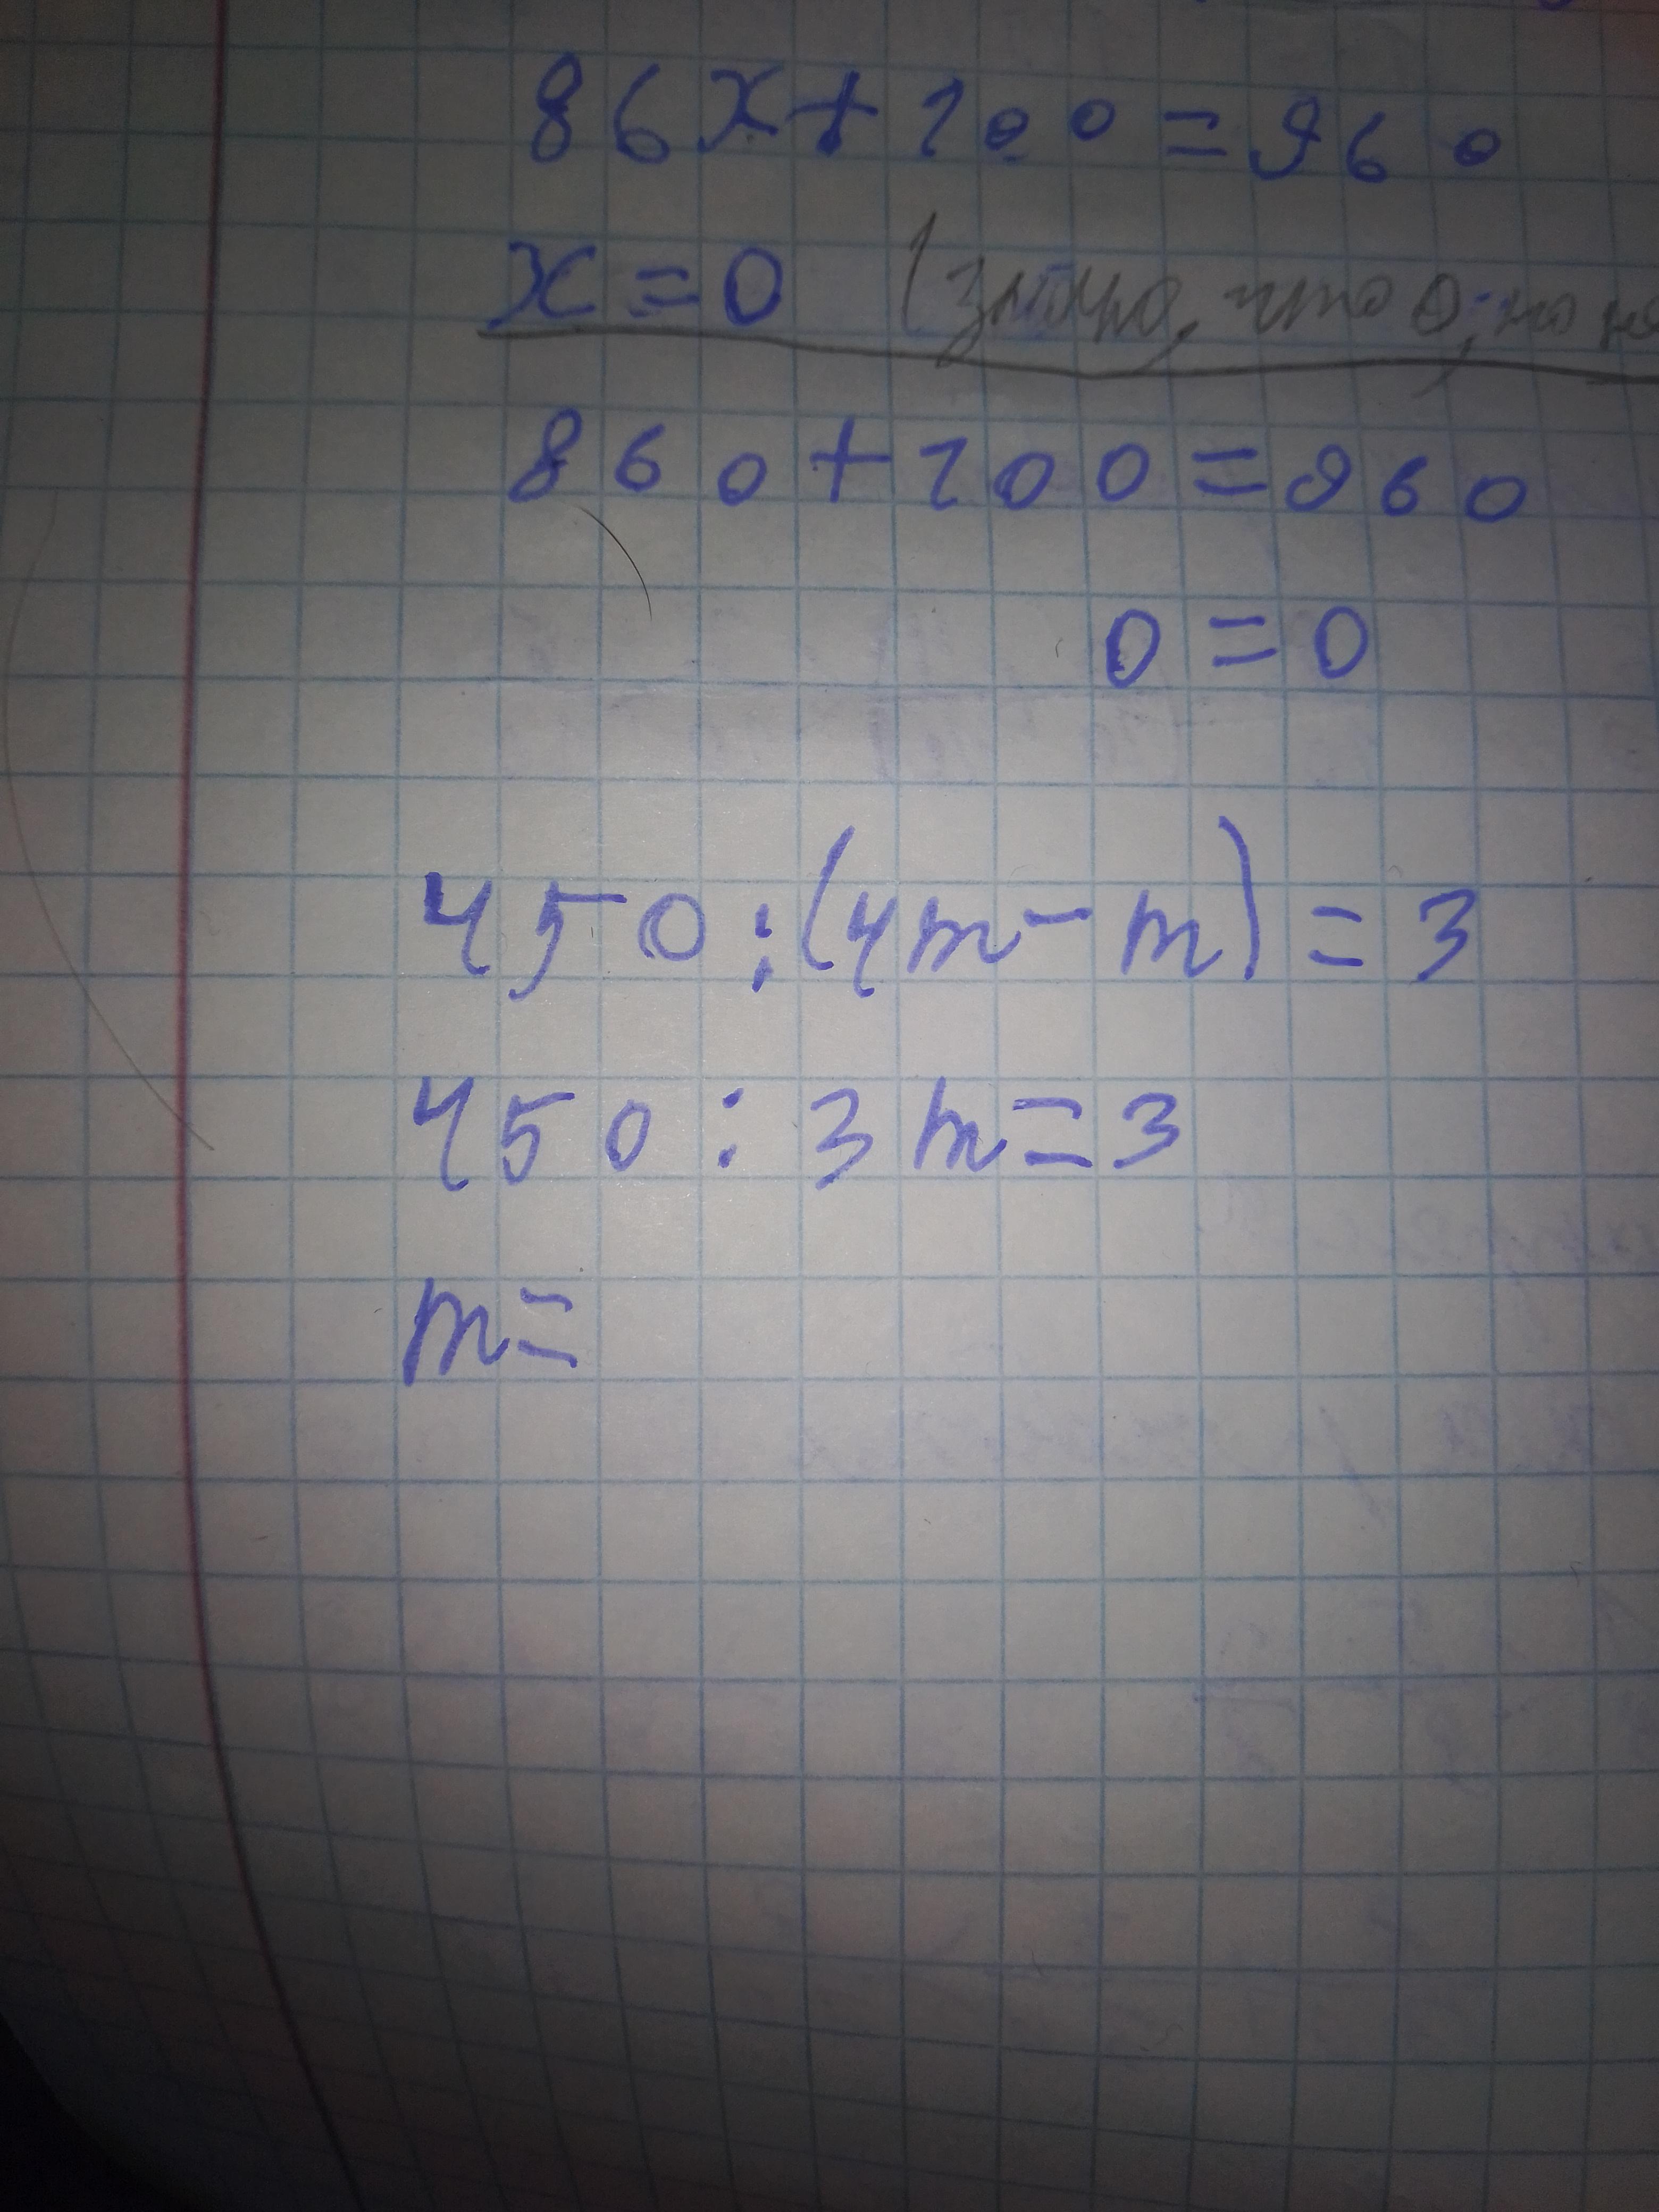 86x+100=960
x=0 (знаю, что 0, но
860+100=960
0=0
450:(4m-m)=3
450:3m=3
m=